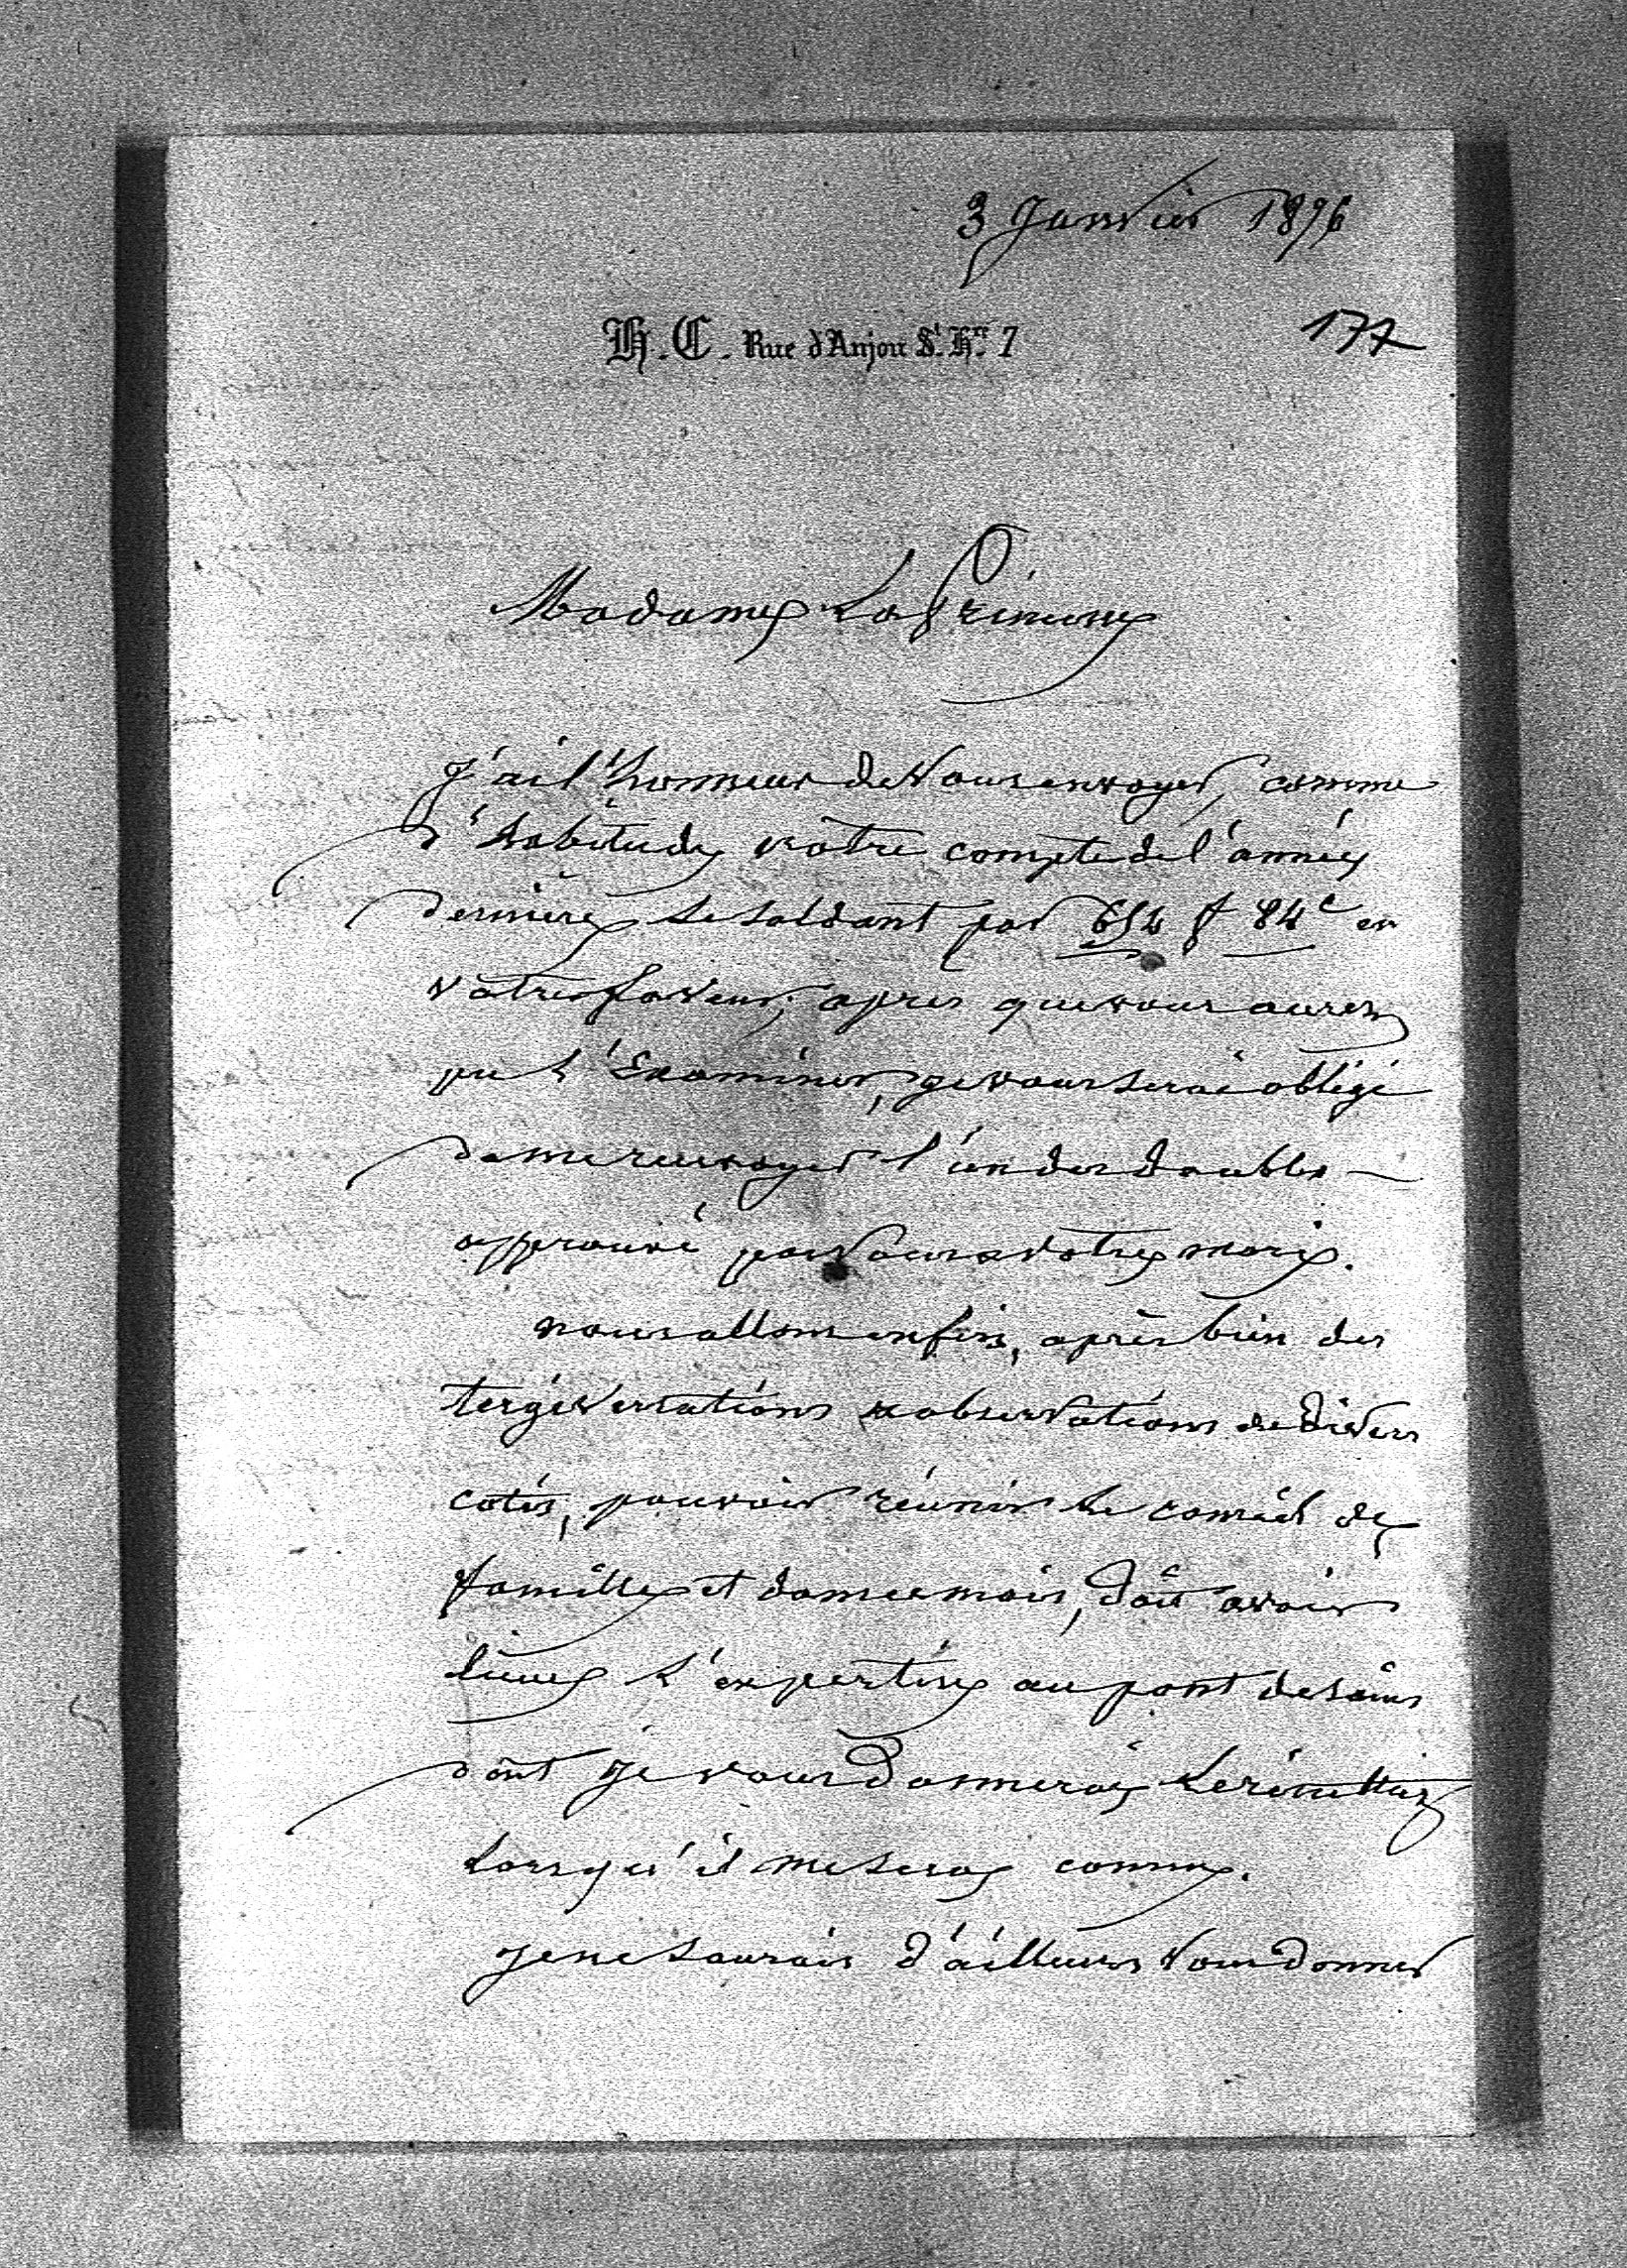 3 Janvier 1876
177
H. C. Rue d'Anjou St. Hré. 7
Madame La Princesse
J'ai l'honneur de vous envoyer, comme
d'habitude votre compte de l'année
dernière se soldant par 654 f 84c en
votre faveur; après que vous aurez
pu l'Examiner, je vous serai obligé
de me renvoyer l'un des doubles
approuvé par Vous & votre mari.
nous allons enfin, après bien des
tergiversations & observations de divers
cotés, pouvoir réunir le conseil de
famille et dans ce mois, doit avoir
lieu l'expertise au pont de sains
dont je vous donnerai le résultat
lorsqu'il me sera connu.
je ne saurais d'ailleurs vous donner